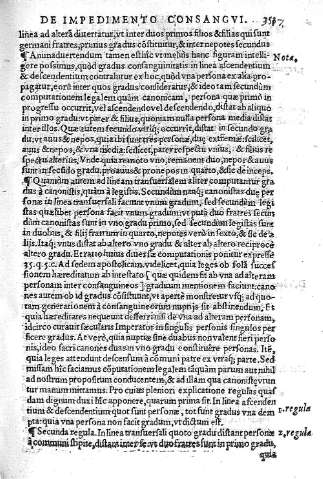 DE IMPEDIMENTO CONSANGVI. 358
linea ad alterā disseritur, vt inter duos primos filios & filias qui sunt
germani fratres, primus gradus cōstituitur, & inter nepotes secundus
¶ Animaduertendum tamen est hic vt melius hanc figuram intelli-
gere possimus, quòd gradus consanguinitatis in linea ascendentiū
& descendentium contrahitur ex hoc, quòd vna persona ex alia pro-
pagatur, eorū inter quos gradus considerātur, & ideo tam secundùm
computationem legalem quàm canonicam, persona quæ primò in
progressu occurrit, vel ascendendo vel descendendo, distat ab aliquo
in primo gradu vt pater & filius, quoniam nulla persona media distat
inter illos. Quæ autem secundo occurrit, distat in secundo gra-
du, vt auus & nepos, quia ibi sunt tres personæ, duæ extremæ, scilicet,
auus & nepos, & vna media, scilicet, pater respectu vnius, & filius re-
spectu alterius. Vnde quia remoto vno, remanent duo, nepos & auus
sunt in secūdo gradu, proauus & pronepos in quarto, & sic de inceps.
¶ Quantùm autem ad lineam transuersalem aliter computantur gra-
dus à canonistis, quàm à legistis. Secundùm canonistas duæ per-
sonæ in linea transuersali faciunt vnum gradum, sed secundùm legi-
stas quælibet persona facit vnum gradum: vt putà duo fratres secun-
dùm canonistas sunt in vno gradu primo, sed secundùm legistas sunt
in duobus, & filij fratrum in quarto, nepotes verò in sexto, & sic de a-
lijs. Itaq; vnus distat ab altero vno gradu & alter ab altero reciprocè
altero gradu.
35. q. 5. c. Ad sedem apostolicam, videlicet, quia leges ob solā succes-
sionem hæreditatum ab intestato (quæ quidem fit ab vna ad alteram
personam inter consanguineos) graduum mentionem faciunt: cano-
nes autem ob id gradus cōstituunt, vt apertè monstretur vsq; ad quo-
tam generationem à consanguineorum nuptijs sit abstinendum. Et
quia hæreditates nequeunt defferri nisi de vna ad alteram personam,
idcirco curauit sæcularis Imperator in singulis personis singulos per
ficere gradus. At verò, quia nuptiæ sine duabus non valent fieri perso-
nis, ideo sacri canones duas in vno gradu constituunt personas. Itē,
quia leges attendunt descensum à cōmuni patre ex vtraq; parte. Sed
missam hîc faciamus cōputationem legalem tāquàm parum aut nihil
ad nostrum propositum conducentem, & ad illam qua canonistæ vtun-
tur manum mittamus. Pro cuius pleniori explicatione regulas quas-
dam dignum duxi hîc apponere, quarum prima sit. In linea ascenden
tium & descendentium quot sunt personæ, tot sunt gradus vna dem
pta: quia vna persona non facit gradum, vt dictum est.
¶ Secunda regula. In linea transuersali quoto gradu distant personæ
à communi stipite, distant inter se, vt duo fratres sunt in primo gradu,
quia
Nota.
1. regula
2. regula